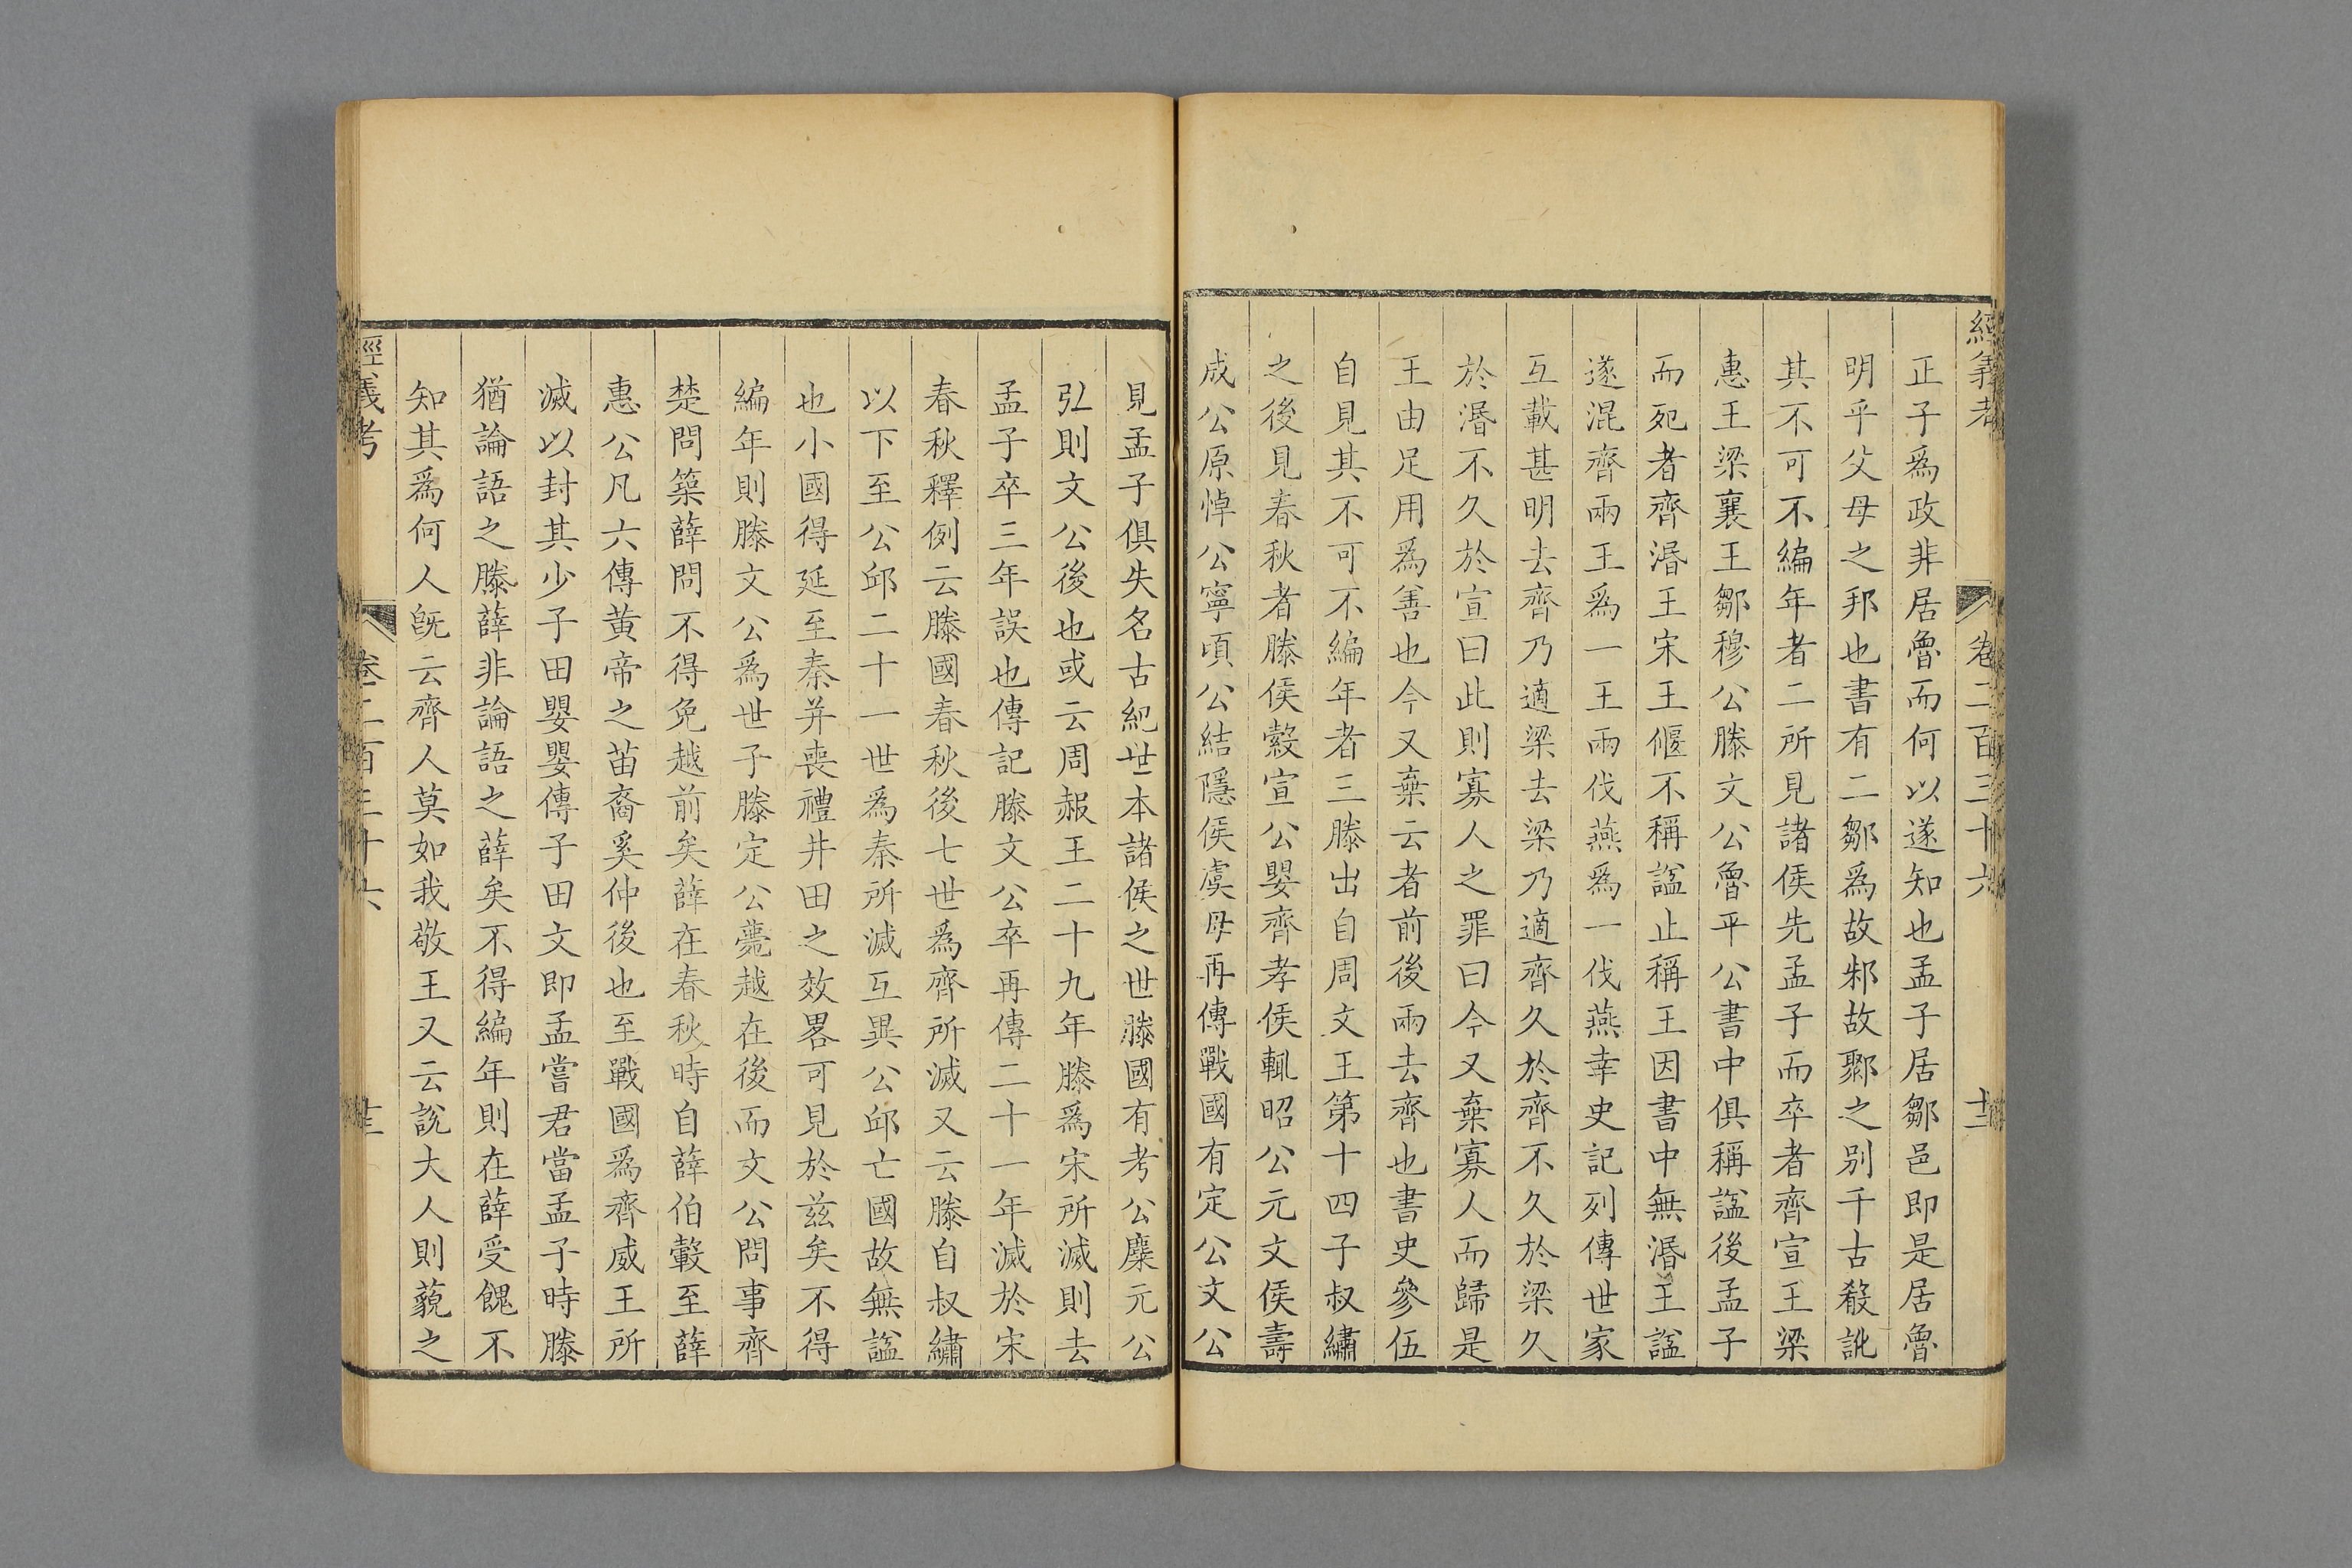 經義考 卷二百三十六 十二
正子爲政非居魯而何以遂知也孟子居鄒邑即是居魯
明乎父母之邦也書有二鄒爲故邾故鄹之別千古殽訛
其不可不編年者二所見諸侯先孟子而卒者齊宣王梁
惠王梁襄王鄒穆公滕文公魯平公書中俱稱諡後孟子
而死者齊湣王宋王偃不稱諡止稱王因書中無湣王諡
遂混齊兩王爲一王兩伐燕爲一伐燕幸史記列傳世家
互載甚明去齊乃適梁去梁乃適齊久於齊不久於梁久
於湣不久於宣曰此則寡人之罪曰今又棄寡人而歸是
王由足用爲善也今又棄云者前後兩去齊也書史參伍
自見其不可不編年者三滕出自周文王第十四子叔繡
之後見春秋者滕侯縠宣公嬰齊孝侯輒昭公元文侯壽
成公原悼公寧頃公結隱侯虞母再傳戰國有定公文公
見孟子俱失名古紀世本諸侯之世滕國有考公麋元公
弘則文公後也或云周赧王二十九年滕爲宋所滅則去
孟子卒三年誤也傳記滕文公卒再傳二十一年滅於宋
春秋釋例云滕國春秋後七世爲齊所滅又云滕自叔繡
以下至公邱二十一世爲秦所滅互異公邱亡國故無諡
也小國得延至秦并喪禮井田之效畧可見於兹矣不得
編年則滕文公爲世子滕定公薨越在後而文公問事齊
楚問築薛問不得免越前矣薛在春秋時自薛伯轂至薛
惠公凡六傳黃帝之苗裔奚仲後也至戰國爲齊威王所
滅以封其少子田嬰嬰傳子田文即孟嘗君當孟子時滕
猶論語之滕薛非論語之薛矣不得編年則在薛受餽不
知其爲何人旣云齊人莫如我敬王又云說大人則藐之
經義考 卷二百三十六